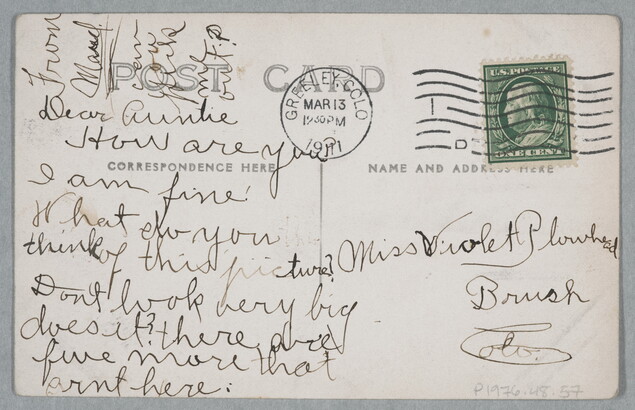 From
Mabel
can
you
find
my
out F.P
POST CARD
GREELEY, COLO
MAR 13
12 30 PM
1911
U.S. POSTAGE
D
Dear Auntie
How are you
CORRESPONDENCE HERE
NAME AND ADDRESS HERE
I am fine
What do you
think of this picture?
Dont look very big
does it? there are
five more that
arnt here.
Miss Violet Plowhead
Brush
Colo.
P1976.48.57